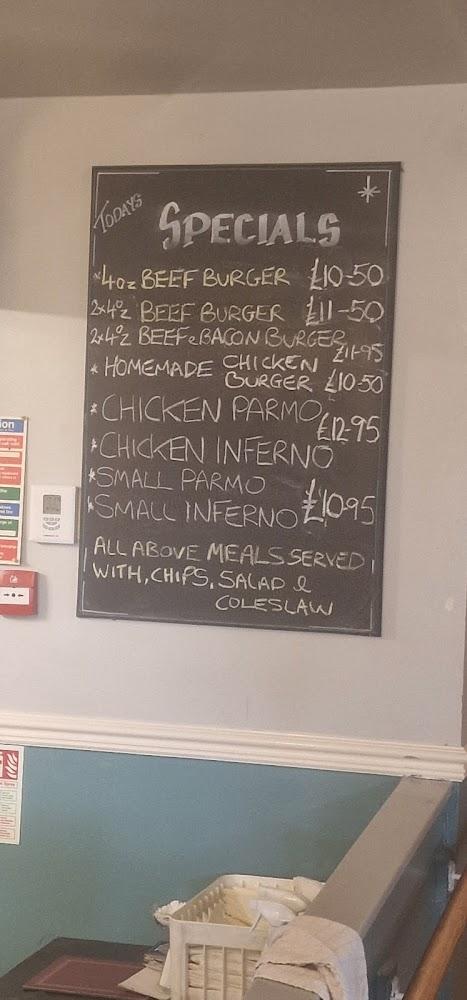 TODAYS
SPECIALS
*4oz BEEF BURGER £10-50
2x4oz BEEF BURGER £11-50
2x4oz BEEF & BACON BURGER
£11-95
* HOMEMADE CHICKEN
BURGER £10 50
* CHICKEN PARMO
£12-95
* CHICKEN INFERNO
*SMALL PARMO
*SMALL INFERNO £10-95
ALL ABOVE MEALS SERVED
WITH, CHIPS, SALAD &
COLESLAW